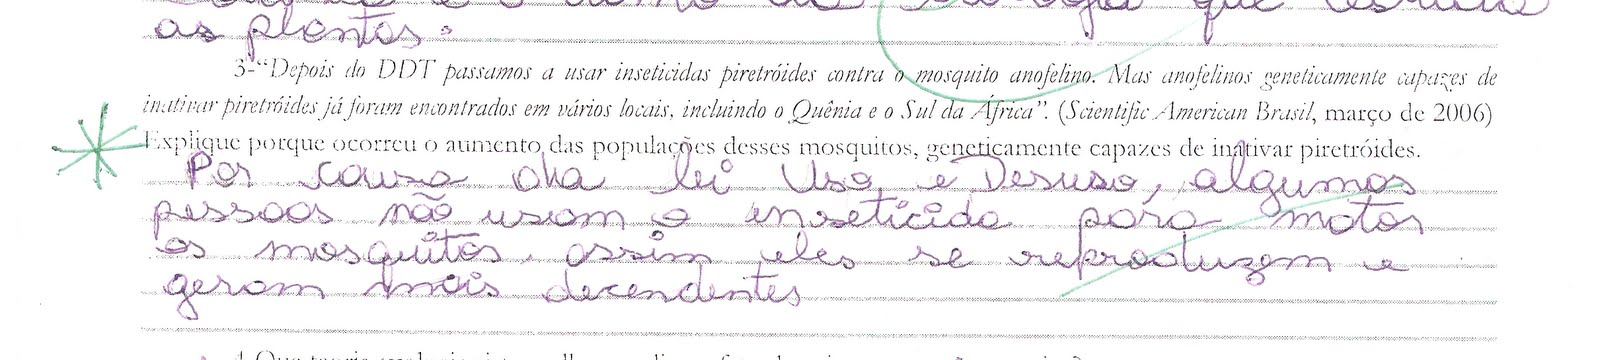 que
as plantas.
3-“Depois do DDT passamos a usar inseticidas piretróides contra o mosquito anofelino. Mas anofelinos geneticamente capazes de
inativar piretróides já foram encontrados em vários locais, incluindo o Quênia e o Sul da África”. (Scientific American Brasil, março de 2006)
Explique porque ocorreu o aumento das populações desses mosquitos, geneticamente capazes de inativar piretróides.
Por causa da lei Uso e Desuso, algumas
pessoas não usam o enseticida para matar
os mosquitos, assim eles se reproduzem e
geram mais decendentes